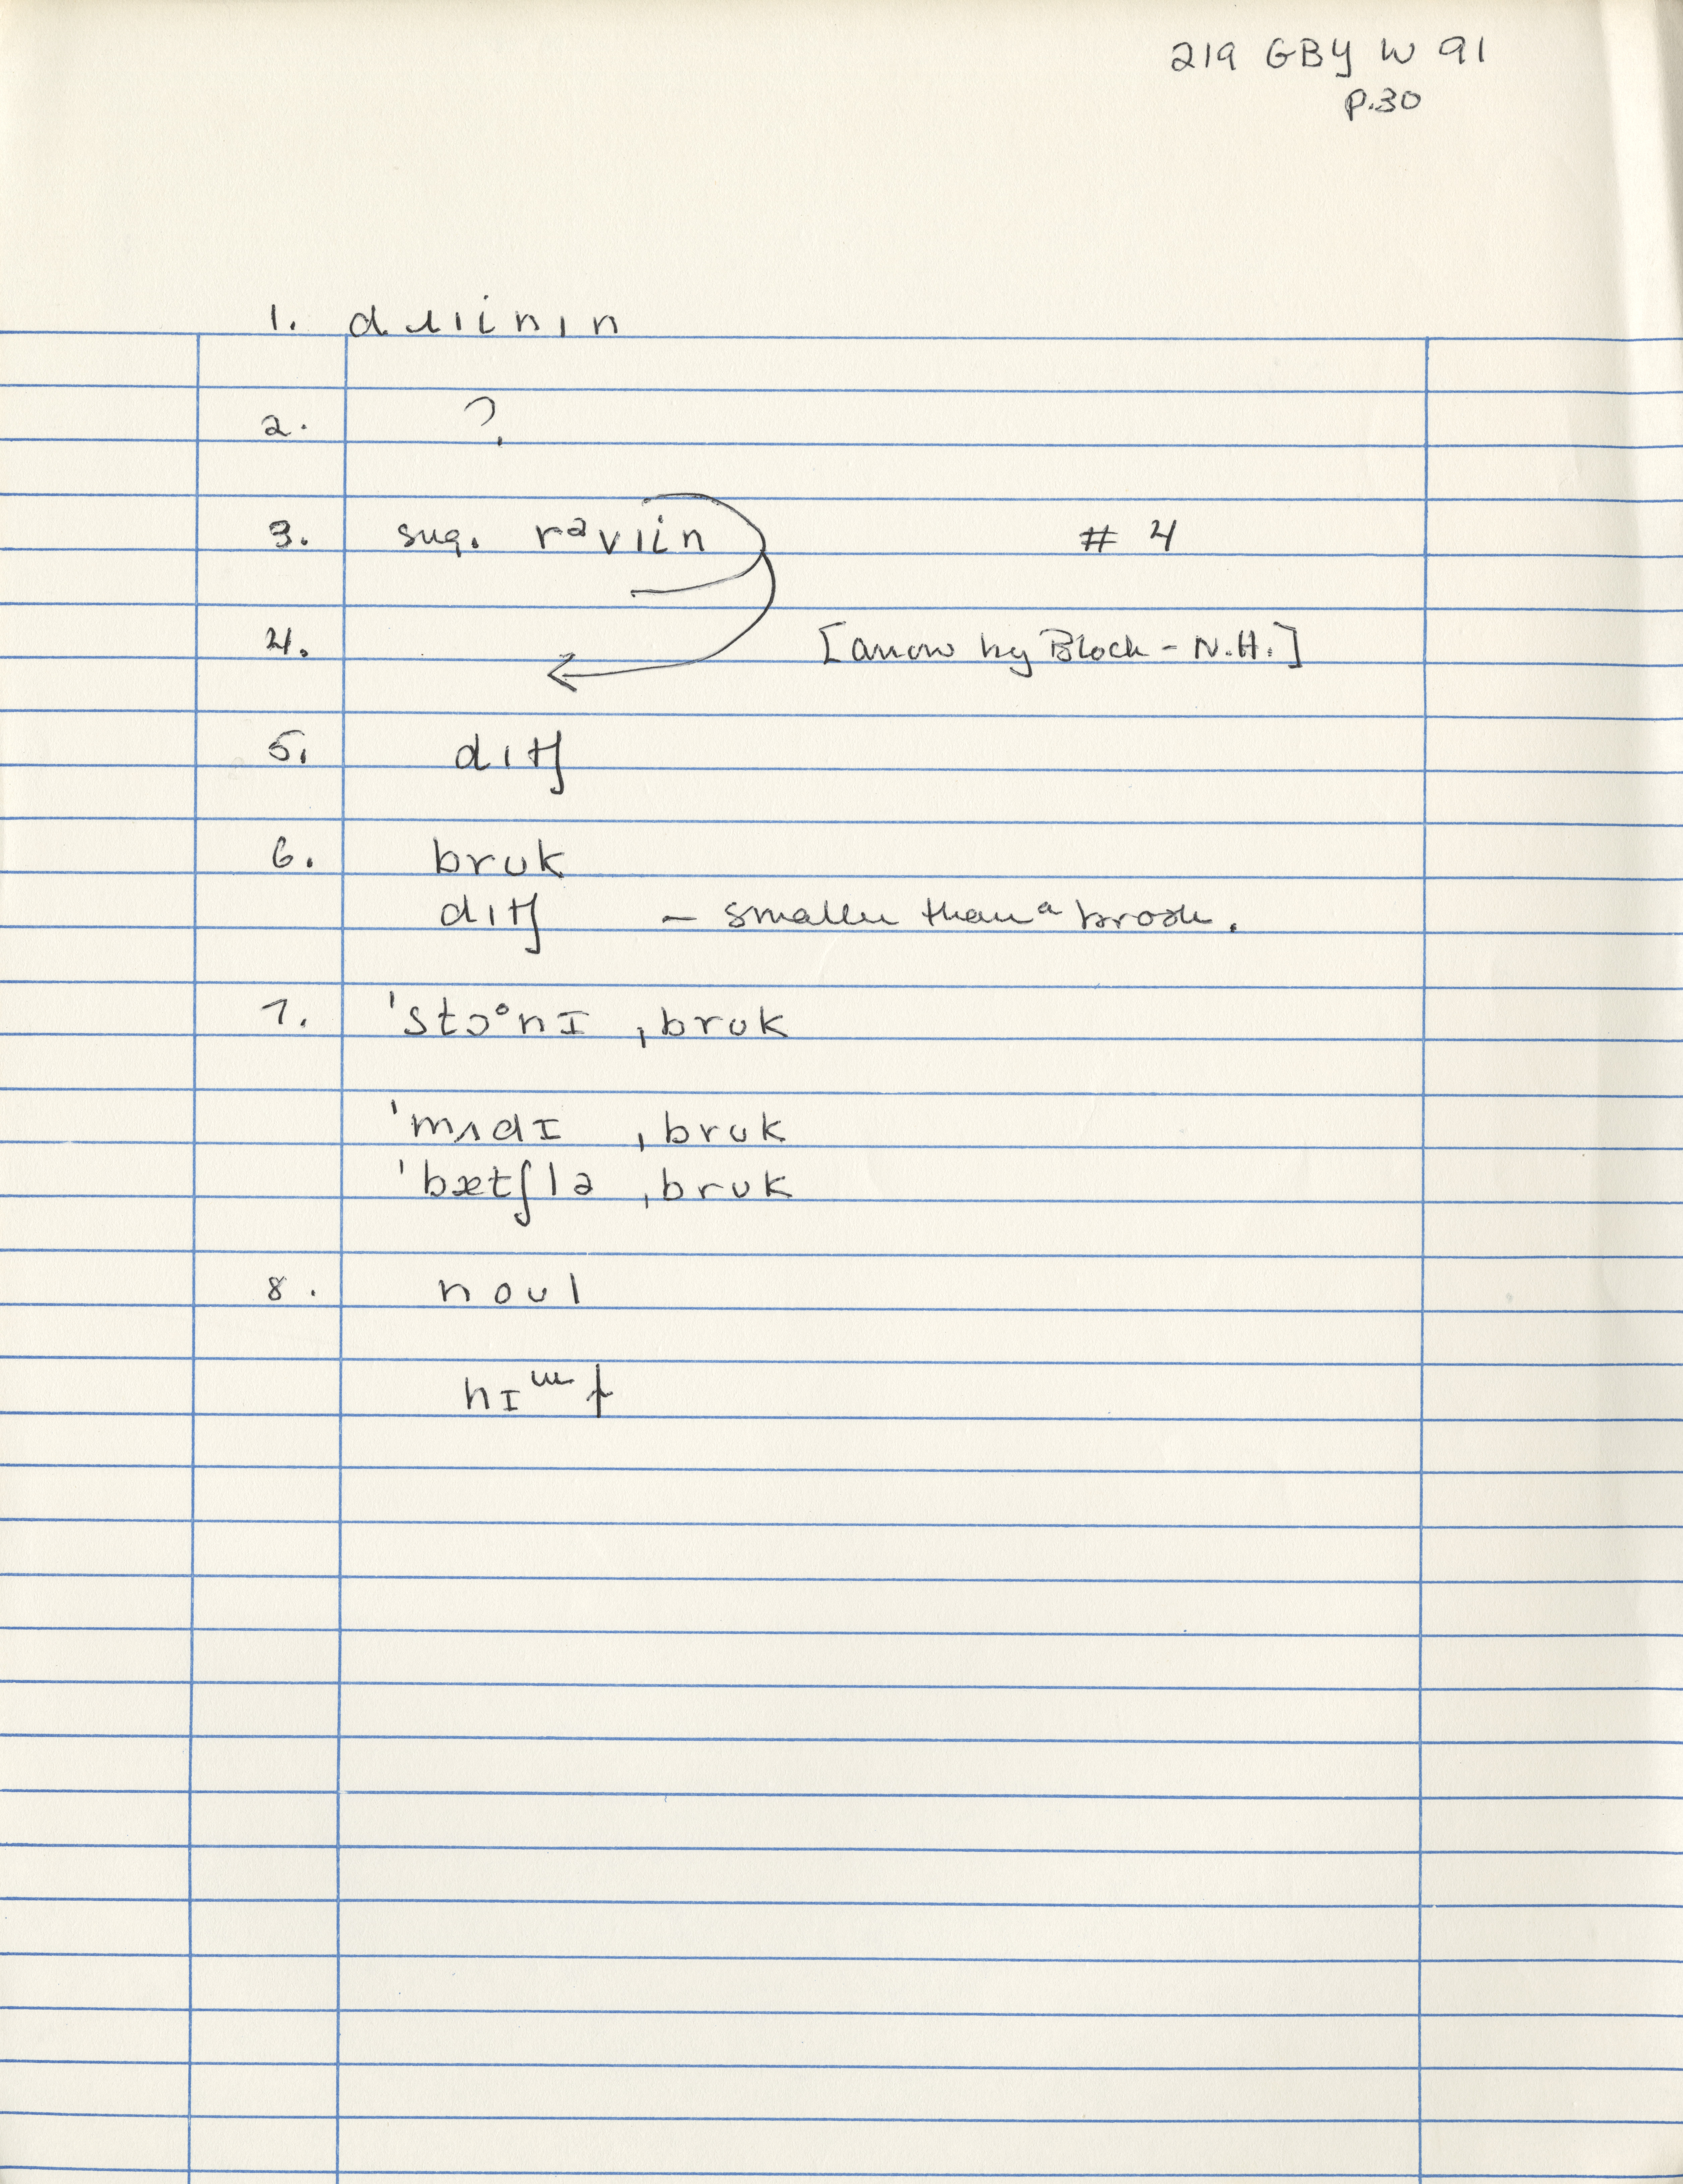 219 GBY W 91
p.30
1.
2. ?
3. sug. rəvɪin # 4
4. [arrow by Bloch - N.H.]
5. dɪtʃ
6. brʊk
dɪtʃ – smaller than a brook.
7. ˈstɔᵒnɪ ˌbrʊk
ˈmʌdɪ ˌbrʊk
ˈbætʃlə ˌbrʊk
8. noʊl